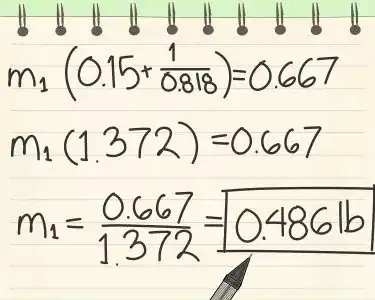 m₁ (0.15 + 1/0.818) = 0.667
m₁ (1.372) = 0.667
m₁ = 0.667/1.372 = 0.486 lb